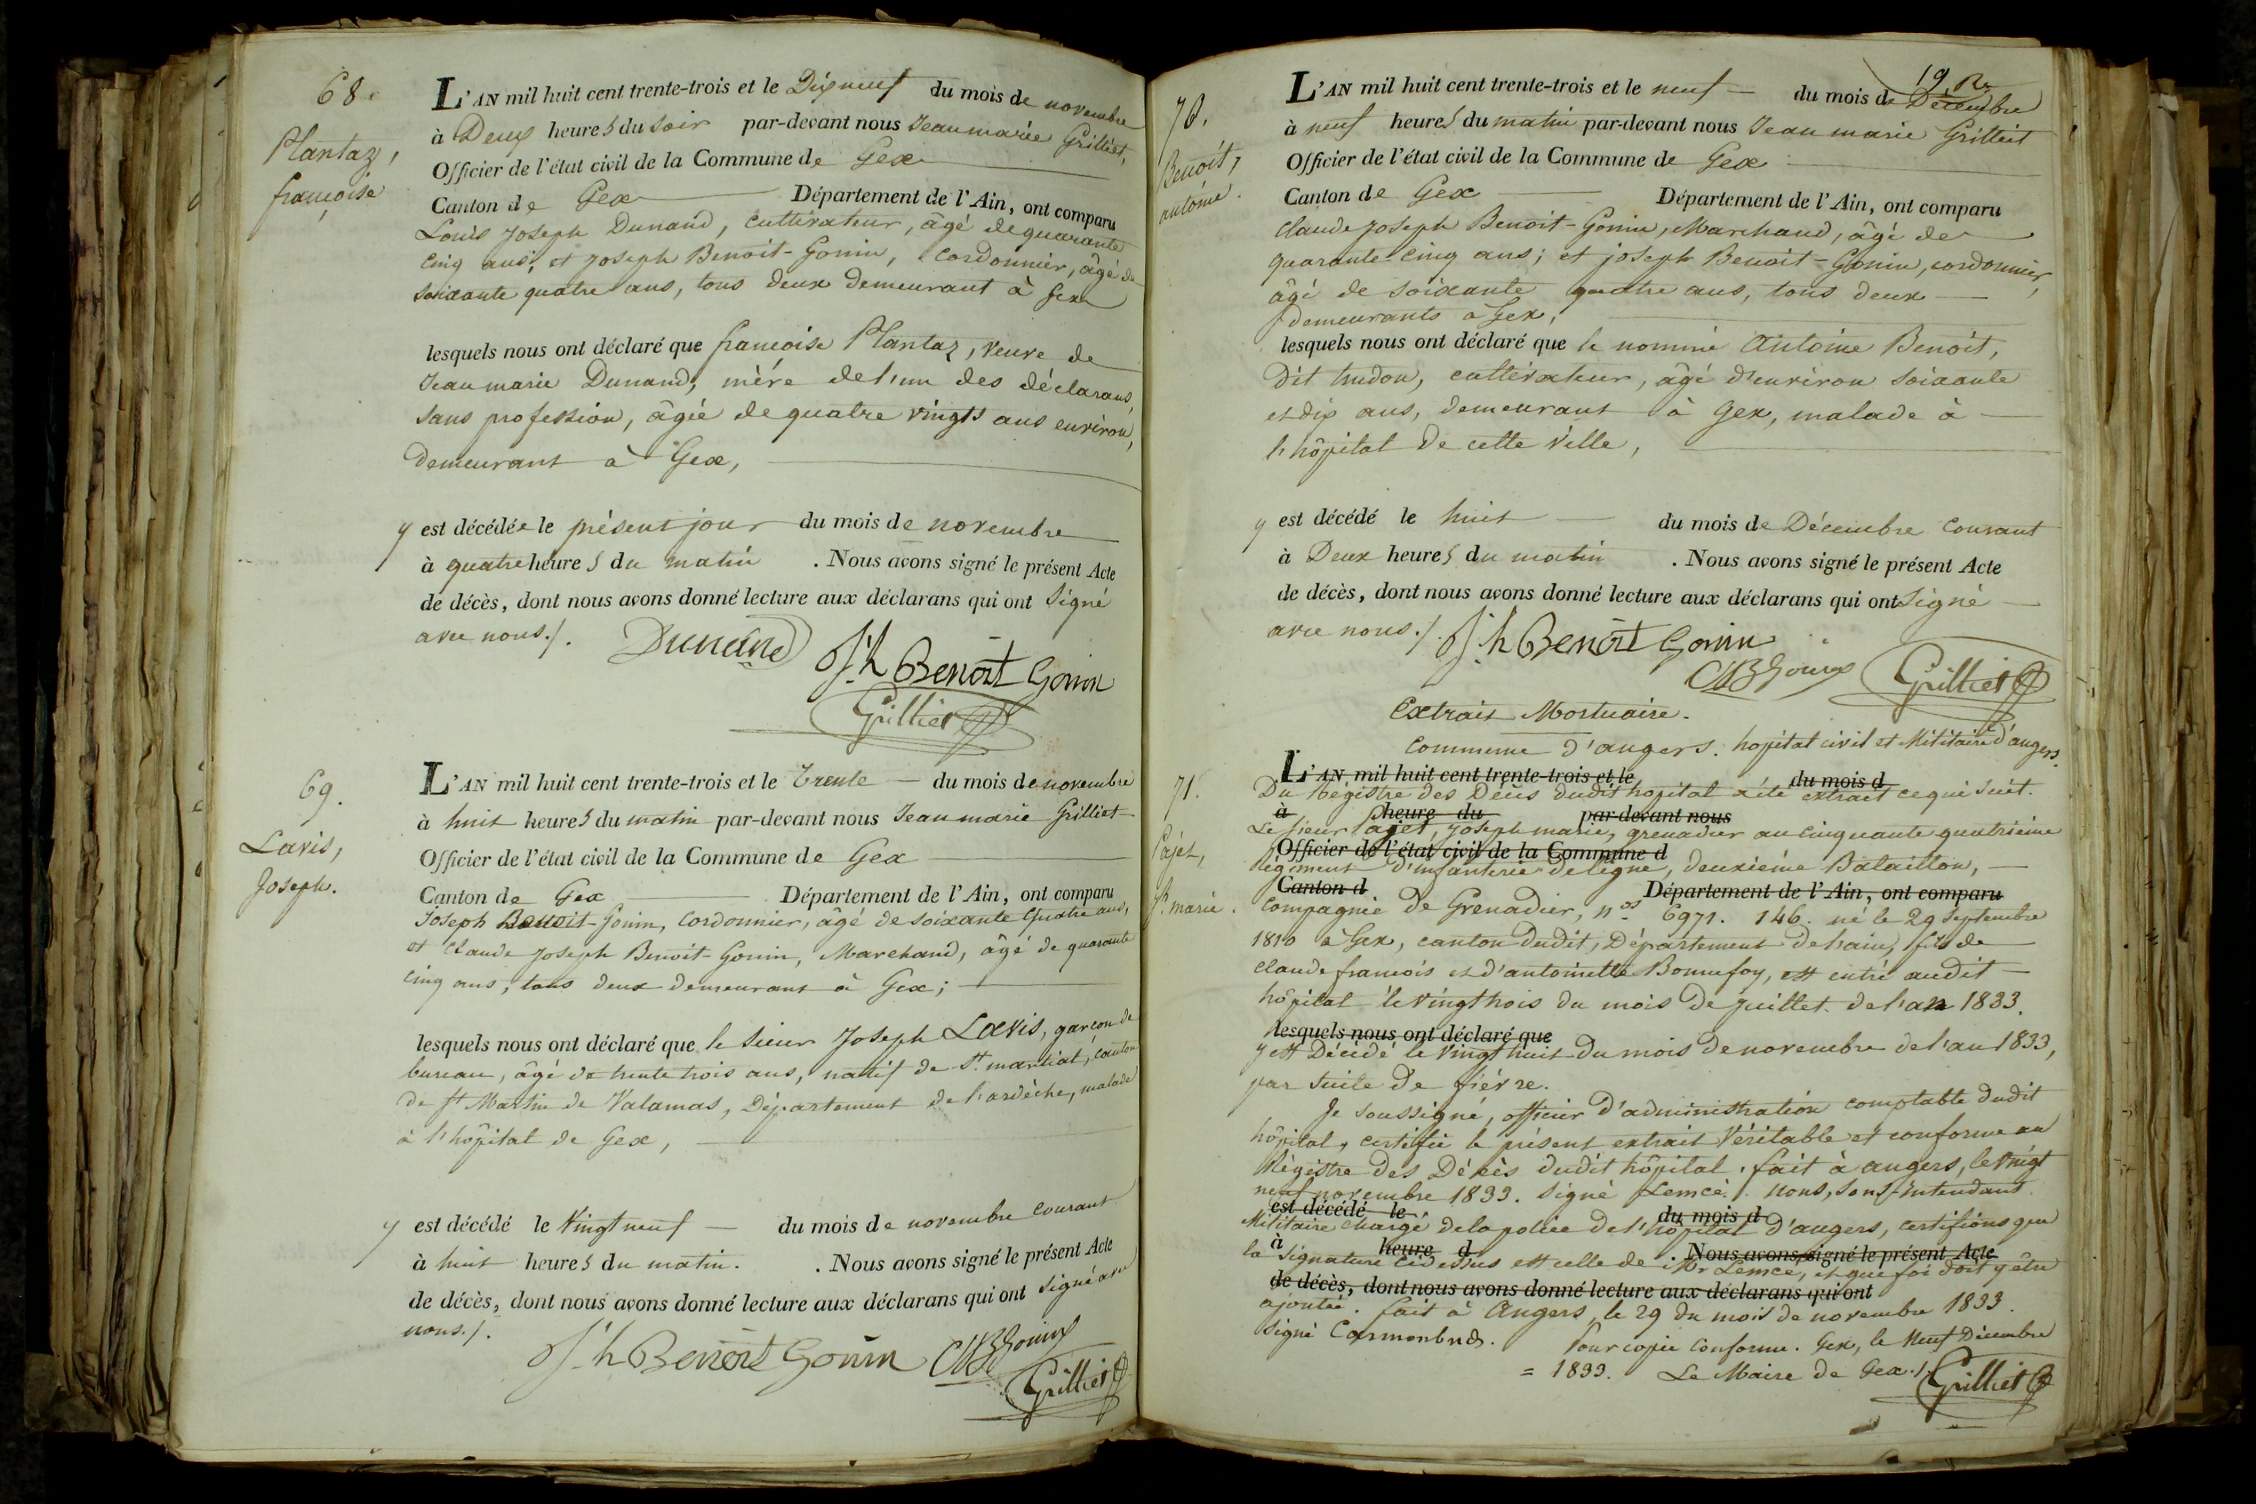 68.
Plantaz,
françoise
L'AN mil huit cent trente-trois et le Dixneuf du mois de novembre
à Deux heures du soir par-devant nous Jean marie Grilliet,
Officier de l'état civil de la Commune de Gex
Canton de Gex Département de l'Ain, ont comparu
Louis Joseph Dunand, cultivateur, âgé de quarante
cinq ans, et Joseph Benoit-Gonin, cordonnier, âgé de
soixante quatre ans, tous deux demeurant à Gex
lesquels nous ont déclaré que françoise Plantaz, veuve de
Jean marie Dunand, mère de l'un des déclarans,
sans profession, âgée de quatre vingts ans environ,
demeurant à Gex,
y est décédée le présent jour du mois de novembre
à quatre heures du matin . Nous avons signé le présent Acte
de décès, dont nous avons donné lecture aux déclarans qui ont signé
avec nous./.
Dunand J.h Benoit Gonin
Grilliet
69.
Lavis,
Joseph.
L'AN mil huit cent trente-trois et le Trente du mois de novembre
à huit heures du matin par-devant nous Jean marie Grilliet
Officier de l'état civil de la Commune de Gex
Canton de Gex Département de l'Ain, ont comparu
Joseph Benoit-Gonin, Cordonnier, âgé de soixante quatre ans,
et Claude Joseph Benoit-Gonin, Marchand, âgé de quarante
cinq ans, tous deux demeurant à Gex;
lesquels nous ont déclaré que le sieur Joseph Lavis, garçon de
bureau, âgé de trente trois ans, natif de St. martial, canton
de St Martin de Valamas, Département de l'ardèche, malade
à l'hôpital de Gex,
y est décédé le Vingt neuf du mois de novembre courant
à huit heures du matin. . Nous avons signé le présent Acte
de décès, dont nous avons donné lecture aux déclarans qui ont signé avec
nous./.
J.h Benoit Gonin CJBGonin
Grilliet
70.
Benoit,
antoine.
19.
L'AN mil huit cent trente-trois et le neuf du mois de Décembre
à neuf heures du matin par-devant nous Jean marie Grilliet
Officier de l'état civil de la Commune de Gex
Canton de Gex Département de l'Ain, ont comparu
Claude Joseph Benoit-Gonin, Marchand, âgé de
quarante cinq ans; et joseph Benoit-Gonin, cordonnier,
âgé de soixante quatre ans, tous deux
demeurants à Gex,
lesquels nous ont déclaré que le nommé Antoine Benoit,
Dit trudon, cultivateur, âgé d'environ soixante
et dix ans, demeurant à Gex, malade à
l'hôpital de cette ville,
y est décédé le huit du mois de Décembre courant
à Deux heures du matin . Nous avons signé le présent Acte
de décès, dont nous avons donné lecture aux déclarans qui ont signé
avec nous./.
J.h Benoit Gonin
CJBGonin Grilliet
71.
Pajet,
Jh. marie.
Extrait Mortuaire.
Commune d'angers. hopital civil et Militaire d'angers.
L'AN mil huit cent trente-trois et le du mois d
Du Régistre des Décès dudit hopital a été extrait ce qui suit.
à heure du par-devant nous
Le sieur Pajet, joseph marie, grenadier au cinquante quatrième
Officier de l'état civil de la Commune d
Régiment d'infanterie de ligne, deuxième Bataillon,
Canton d Département de l'Ain, ont comparu
Compagnie de Grenadier, nos 6971. 146. né le 29 septembre
1810 à Gex, canton dudit, Département de l'ain, fils de
claude francois et d'antoinette Bonnefoy, est entré audit
hôpital le vingt trois du mois de juillet de l'an 1833.
lesquels nous ont déclaré que
y est Décédé le vingt huit du mois de novembre de l'an 1833,
par suite de fièvre.
Je soussigné, officier d'administration comptable dudit
hôpital, certifie le présent extrait Véritable et conforme au
Régistre des Décès dudit hôpital. fait à angers, le vingt
neuf novembre 1833. signé Lemcé. Nous, sous-intendant
est décédé le du mois d
Militaire chargé de la police de l'hôpital d'angers, certifions que
à heure d . Nous avons signé le présent Acte
la signature ci dessus est celle de Mr Lemcé, et que foi doit y être
de décès, dont nous avons donné lecture aux déclarans qui ont
ajoutée. fait à Angers, le 29 du mois de novembre 1833.
signé
Pour copie conforme. Gex, le Neuf Décembre
= 1833. Le Maire de Gex./.
Grilliet